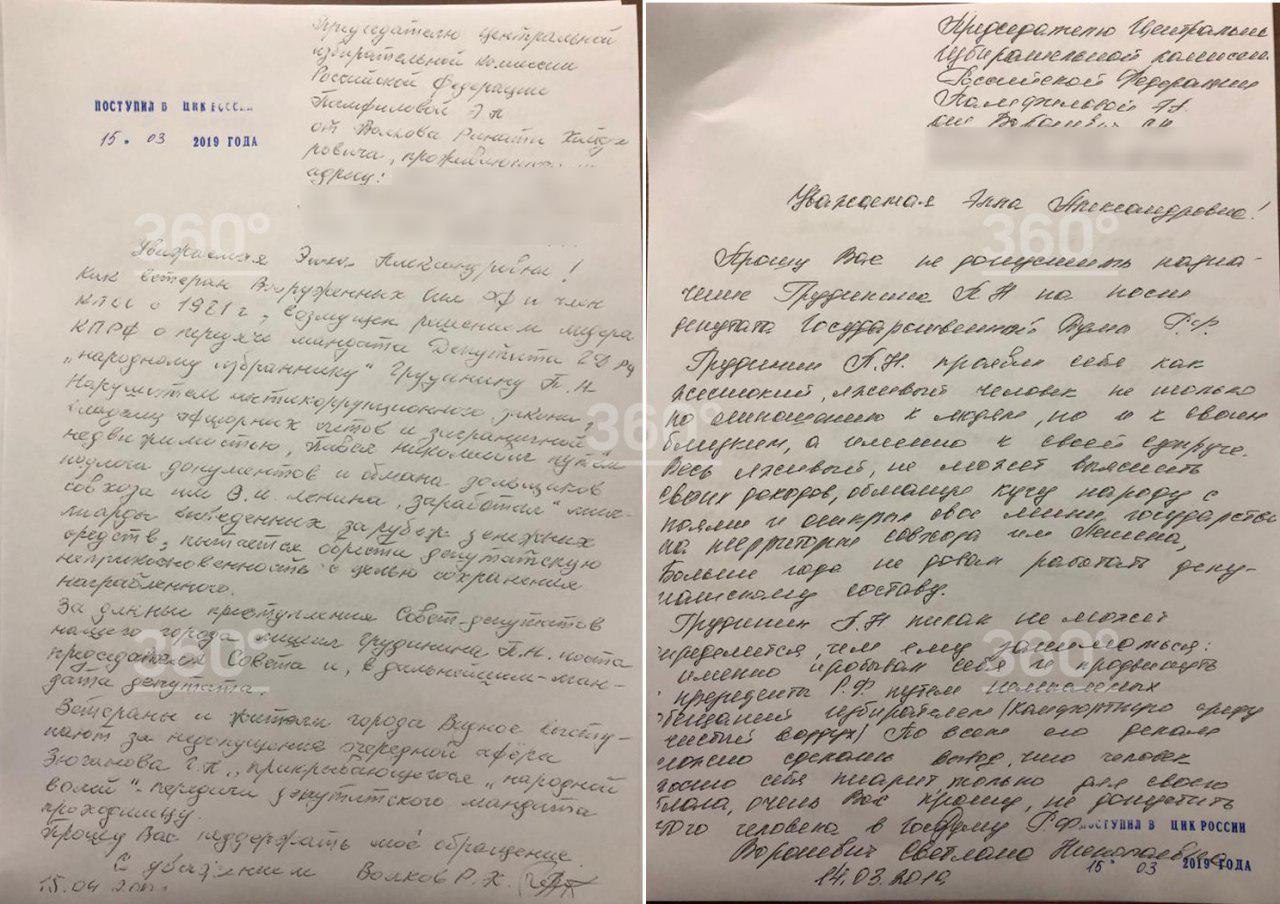 Председателю Центральной
избирательной комиссии
Российской Федерации
Памфиловой Э А
от Волкова Рината
ровича, проживающего
адресу:
ПОСТУПИЛ В ЦИК РОССИИ
15 • 03 2019 ГОДА
360°
Уважаемая Элла Александровна!
Как ветеран Вооруженных Сил РФ и член
КПСС с 1981 г, возмущен решением лидера
КПРФ о передаче мандата Депутата ГД РФ
"народному избраннику" Грудинину П.Н.
Нарушитель антикоррупционного закона,
владелец офшорных счетов и заграничной
недвижимостью, Павел Николаевич путём
подлога документов и обмана дольщиков
совхоза им В.И. Ленина "заработал" мил-
лиарды выведенных за рубеж денежных
средств, пытается обрести депутатскую
неприкосновенность с целью сохранения
награбленного.
За данные преступления Совет депутатов
нашего города лишил Грудинина П.Н. поста
председателя Совета и, в дальнейшим-ман-
дата депутата
360°
Ветераны и жители города Видное высту-
пают за недопущение очередной афёры
Зюганова Г.А., прикрывающегося "народной
волей"- передачи депутатского мандата
проходимцу.
Прошу Вас поддержать моё обращение.
С уважением Волков Р.Х.
15.04
Председателю Центральн
избирательной комиссии
Российской Федерации
Памфиловой Э.А.
Уважаемая Элла Александровна!
360°
Прошу Вас не допустить назна-
чение Грудинина П.Н на пост
депутата Государственной Думы Р.Ф.
Грудинин П.Н. проявил себя как
жестокий, лживый человек не только
по отношению к людям, но и к своим
близким, а именно к своей супруге.
360°
Весь лживый, не может выяснить
своих доходов, обманув кучу народу с
паями и открыл свое мини государство
на территории совхоза им Ленина,
Больше года не давал работать депу-
татскому составу.
Грудинин П.Н никак не может
определится, чем ему заниматься:
360°
именно пробывал себя продвинуть
президента Р.Ф путем
обещаний избирателем (комфортную среду
чистый воздух) По всем его делам
можно сделать вывод, что человек
себя пиарит, только для своего
блага, очень Вас прошу, не допустить
этого человека в ГосДуму Р.Ф.
ПОСТУПИЛ В ЦИК РОССИИ
Вороневич Светлана Николаевна
15 • 03 2019 ГОДА
14.03.2019